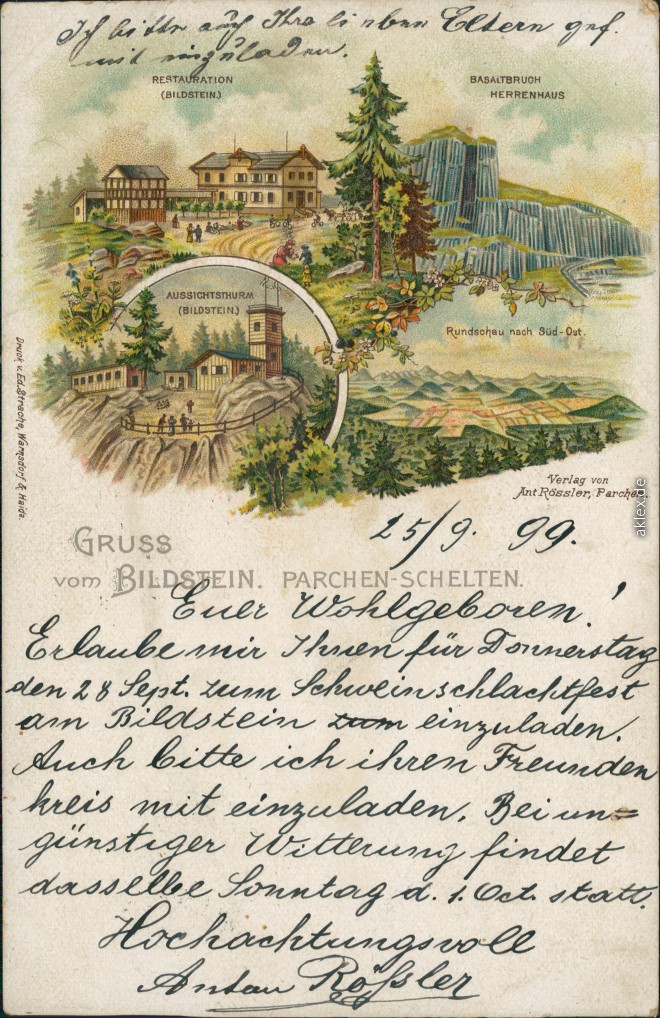 Ich bitte auch Ihre lieben Eltern gef.
mit einzuladen.
RESTAURATION
(BILDSTEIN.)
BASALTBRUCH
HERRENHAUS
AUSSICHTSTHURM
(BILDSTEIN.)
Rundschau nach Süd-Ost.
Druck v. Ed. Strache, Warnsdorf & Haida.
Verlag von
Ant Rössler, Parchen.
aklex.de
25/9. 99.
GRUSS
vom BILDSTEIN. PARCHEN-SCHELTEN.
Euer Wohlgeboren!
Erlaube mir Ihnen für Donnerstag
den 28 Sept. zum Schweinschlachtfest
am Bildstein zum einzuladen.
Auch bitte ich ihren Freunden
kreis mit einzuladen. Bei un=
günstiger Witterung findet
dasselbe Sonntag d. 1. Oct. statt.
Hochachtungsvoll
Anton Rößler